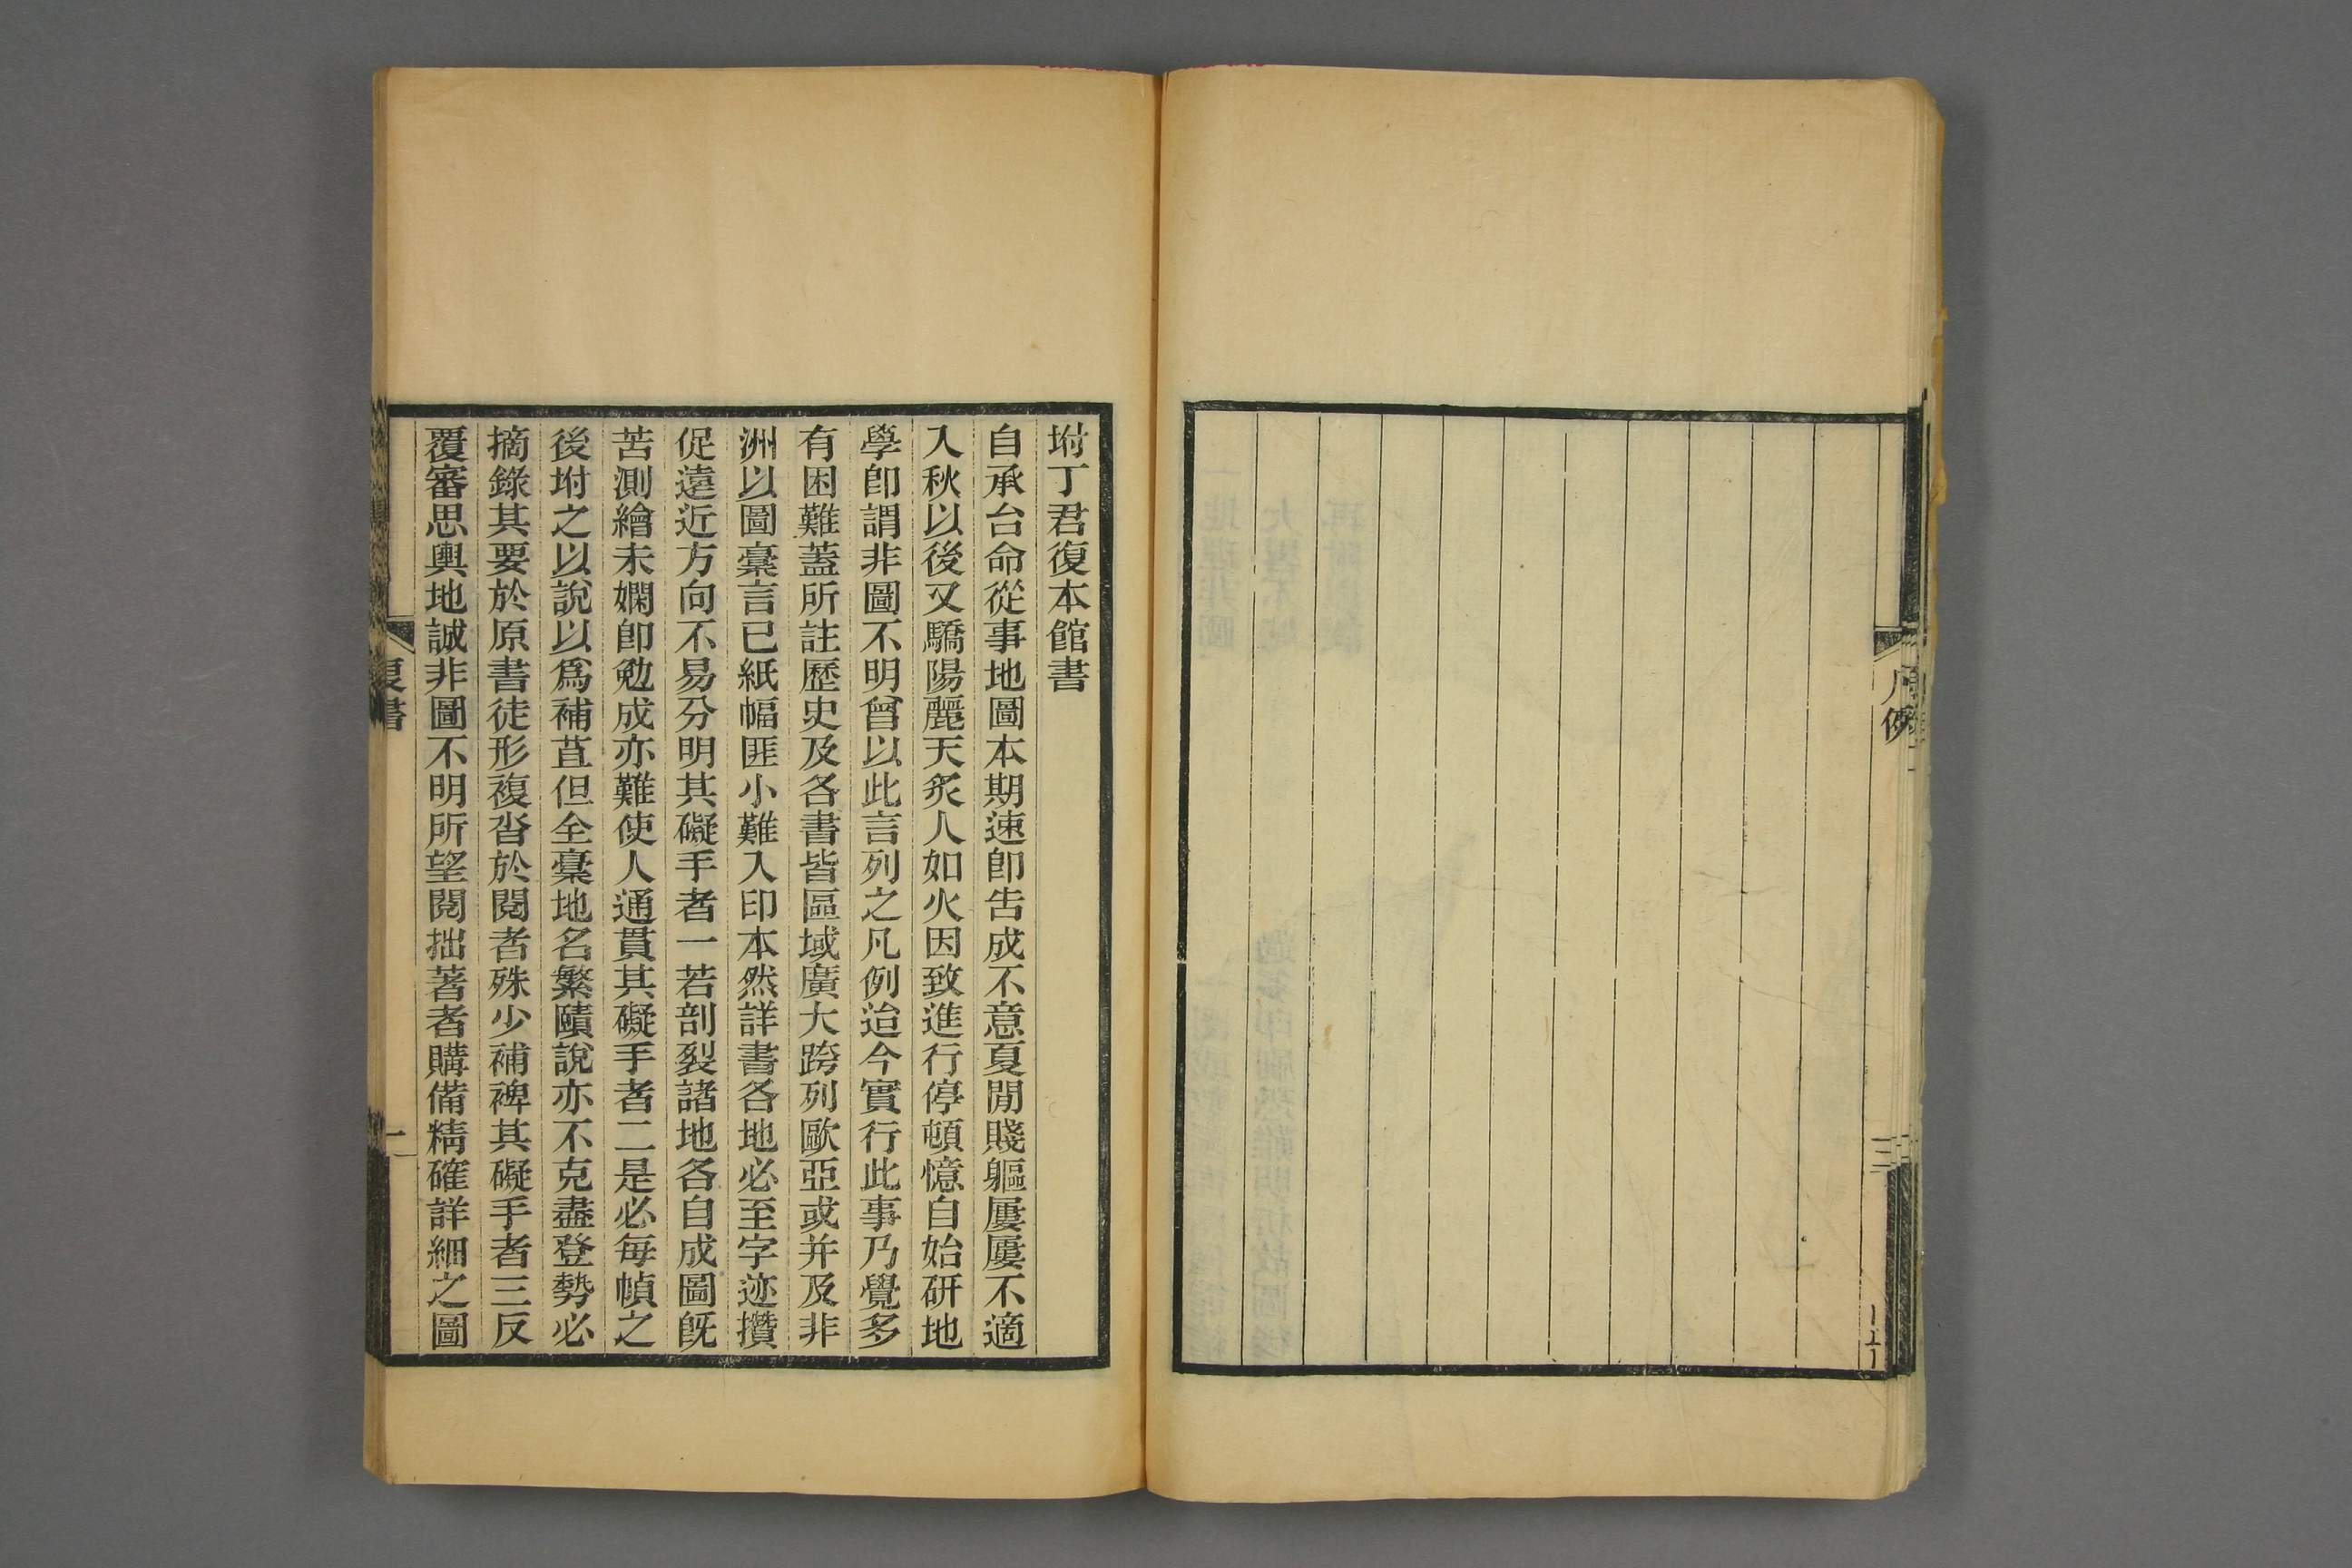 坿丁君復本館書
自承台命從事地圖本期速卽告成不意夏閒賤軀屢屢不適
入秋以後又驕陽麗天炙人如火因致進行停頓憶自始硏地
學卽謂非圖不明曾以此言列之凡例迨今實行此事乃覺多
有困難蓋所註歷史及各書皆區域廣大跨列歐亞或并及非
洲以圖稾言已紙幅匪小難入印本然詳書各地必至字迹攢
促遠近方向不易分明其礙手者一若剖裂諸地各自成圖旣
苦測繪未嫻卽勉成亦難使人通貫其礙手者二是必每幀之
後坿之以說以爲補苴但全稾地名繁賾說亦不克盡登勢必
摘錄其要於原書徒形複沓於閱者殊少補裨其礙手者三反
覆審思輿地誠非圖不明所望閱拙著者購備精確詳細之圖
復書
一
凡例
三